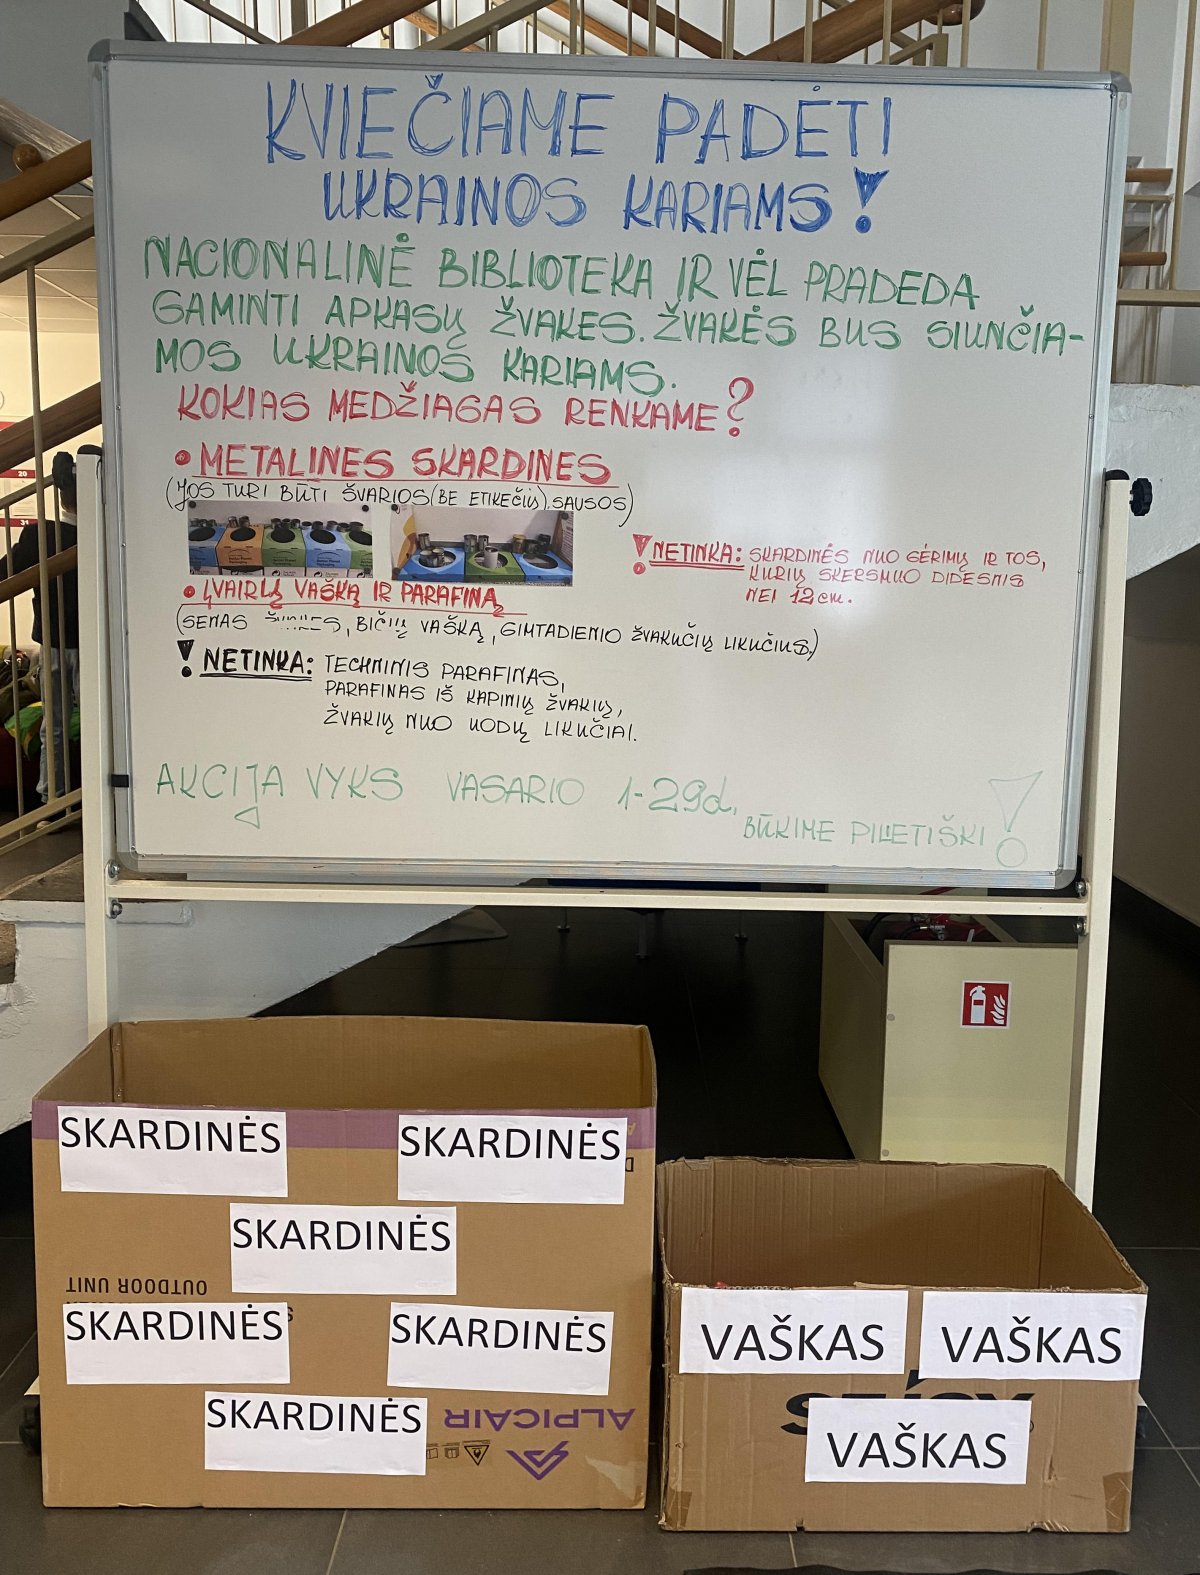 KVIEČIAME PADĖTI
UKRAINOS KARIAMS!
NACIONALINĖ BIBLIOTEKA IR VĖL PRADEDA
GAMINTI APKASŲ ŽVAKES. ŽVAKĖS BUS SIUNČIA-
MOS UKRAINOS KARIAMS.
KOKIAS MEDŽIAGAS RENKAME?
• METALINES SKARDINES
(JOS TURI BŪTI ŠVARIOS (BE ETIKEČIŲ), SAUSOS)
! NETINKA: SKARDINĖS NUO GĖRIMŲ IR TOS,
KURIŲ SKERSMUO DIDESNIS
NEI 12 cm.
• ĮVAIRŲ VAŠKĄ IR PARAFINĄ
(SENAS BIČIŲ VAŠKĄ, GIMTADIENIO ŽVAKUČIŲ LIKUČIUS,)
! NETINKA: TECHNINIS PARAFINAS,
PARAFINAS IŠ KAPINIŲ ŽVAKIŲ,
ŽVAKIŲ NUO UODŲ LIKUČIAI.
AKCIJA VYKS VASARIO 1-29d.
BŪKIME PILIETIŠKI!
SKARDINĖS
SKARDINĖS
SKARDINĖS
OUTDOOR UNIT
SKARDINĖS
SKARDINĖS
SKARDINĖS
ALPICAIR
VAŠKAS
VAŠKAS
VAŠKAS
20
31